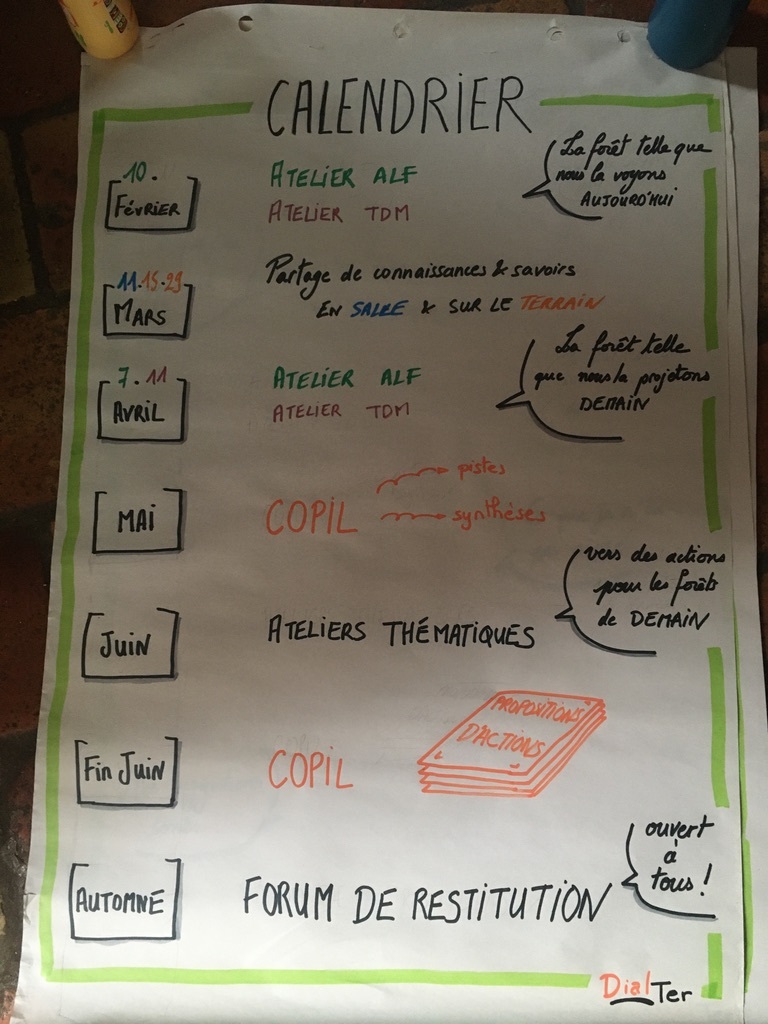 CALENDRIER
10.
FÉVRIER
ATELIER ALF
ATELIER TDM
La forêt telle que
nous la voyons
AUJOURD'HUI
11.15.29
MARS
Partage de connaissances & savoirs
EN SALLE & SUR LE TERRAIN
7.11
AVRIL
ATELIER ALF
ATELIER TDM
La forêt telle
que nous la projetons
DEMAIN
MAI
COPIL
pistes
synthèses
JUIN
ATELIERS THÉMATIQUES
vers des actions
pour les forêts
de DEMAIN
Fin Juin
COPIL
PROPOSITIONS
D'ACTIONS
AUTOMNE
FORUM DE RESTITUTION
ouvert
à
tous !
DialTer